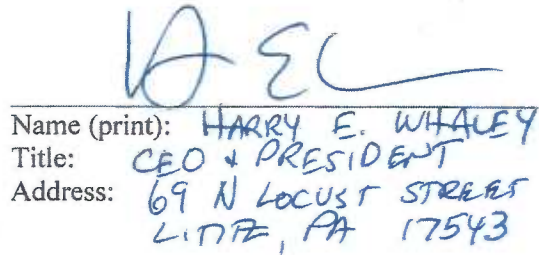 Name (print): HARRY E. WHALEY
Title: CEO & PRESIDENT
Address: 69 N LOCUST STREET
LITITZ, PA 17543